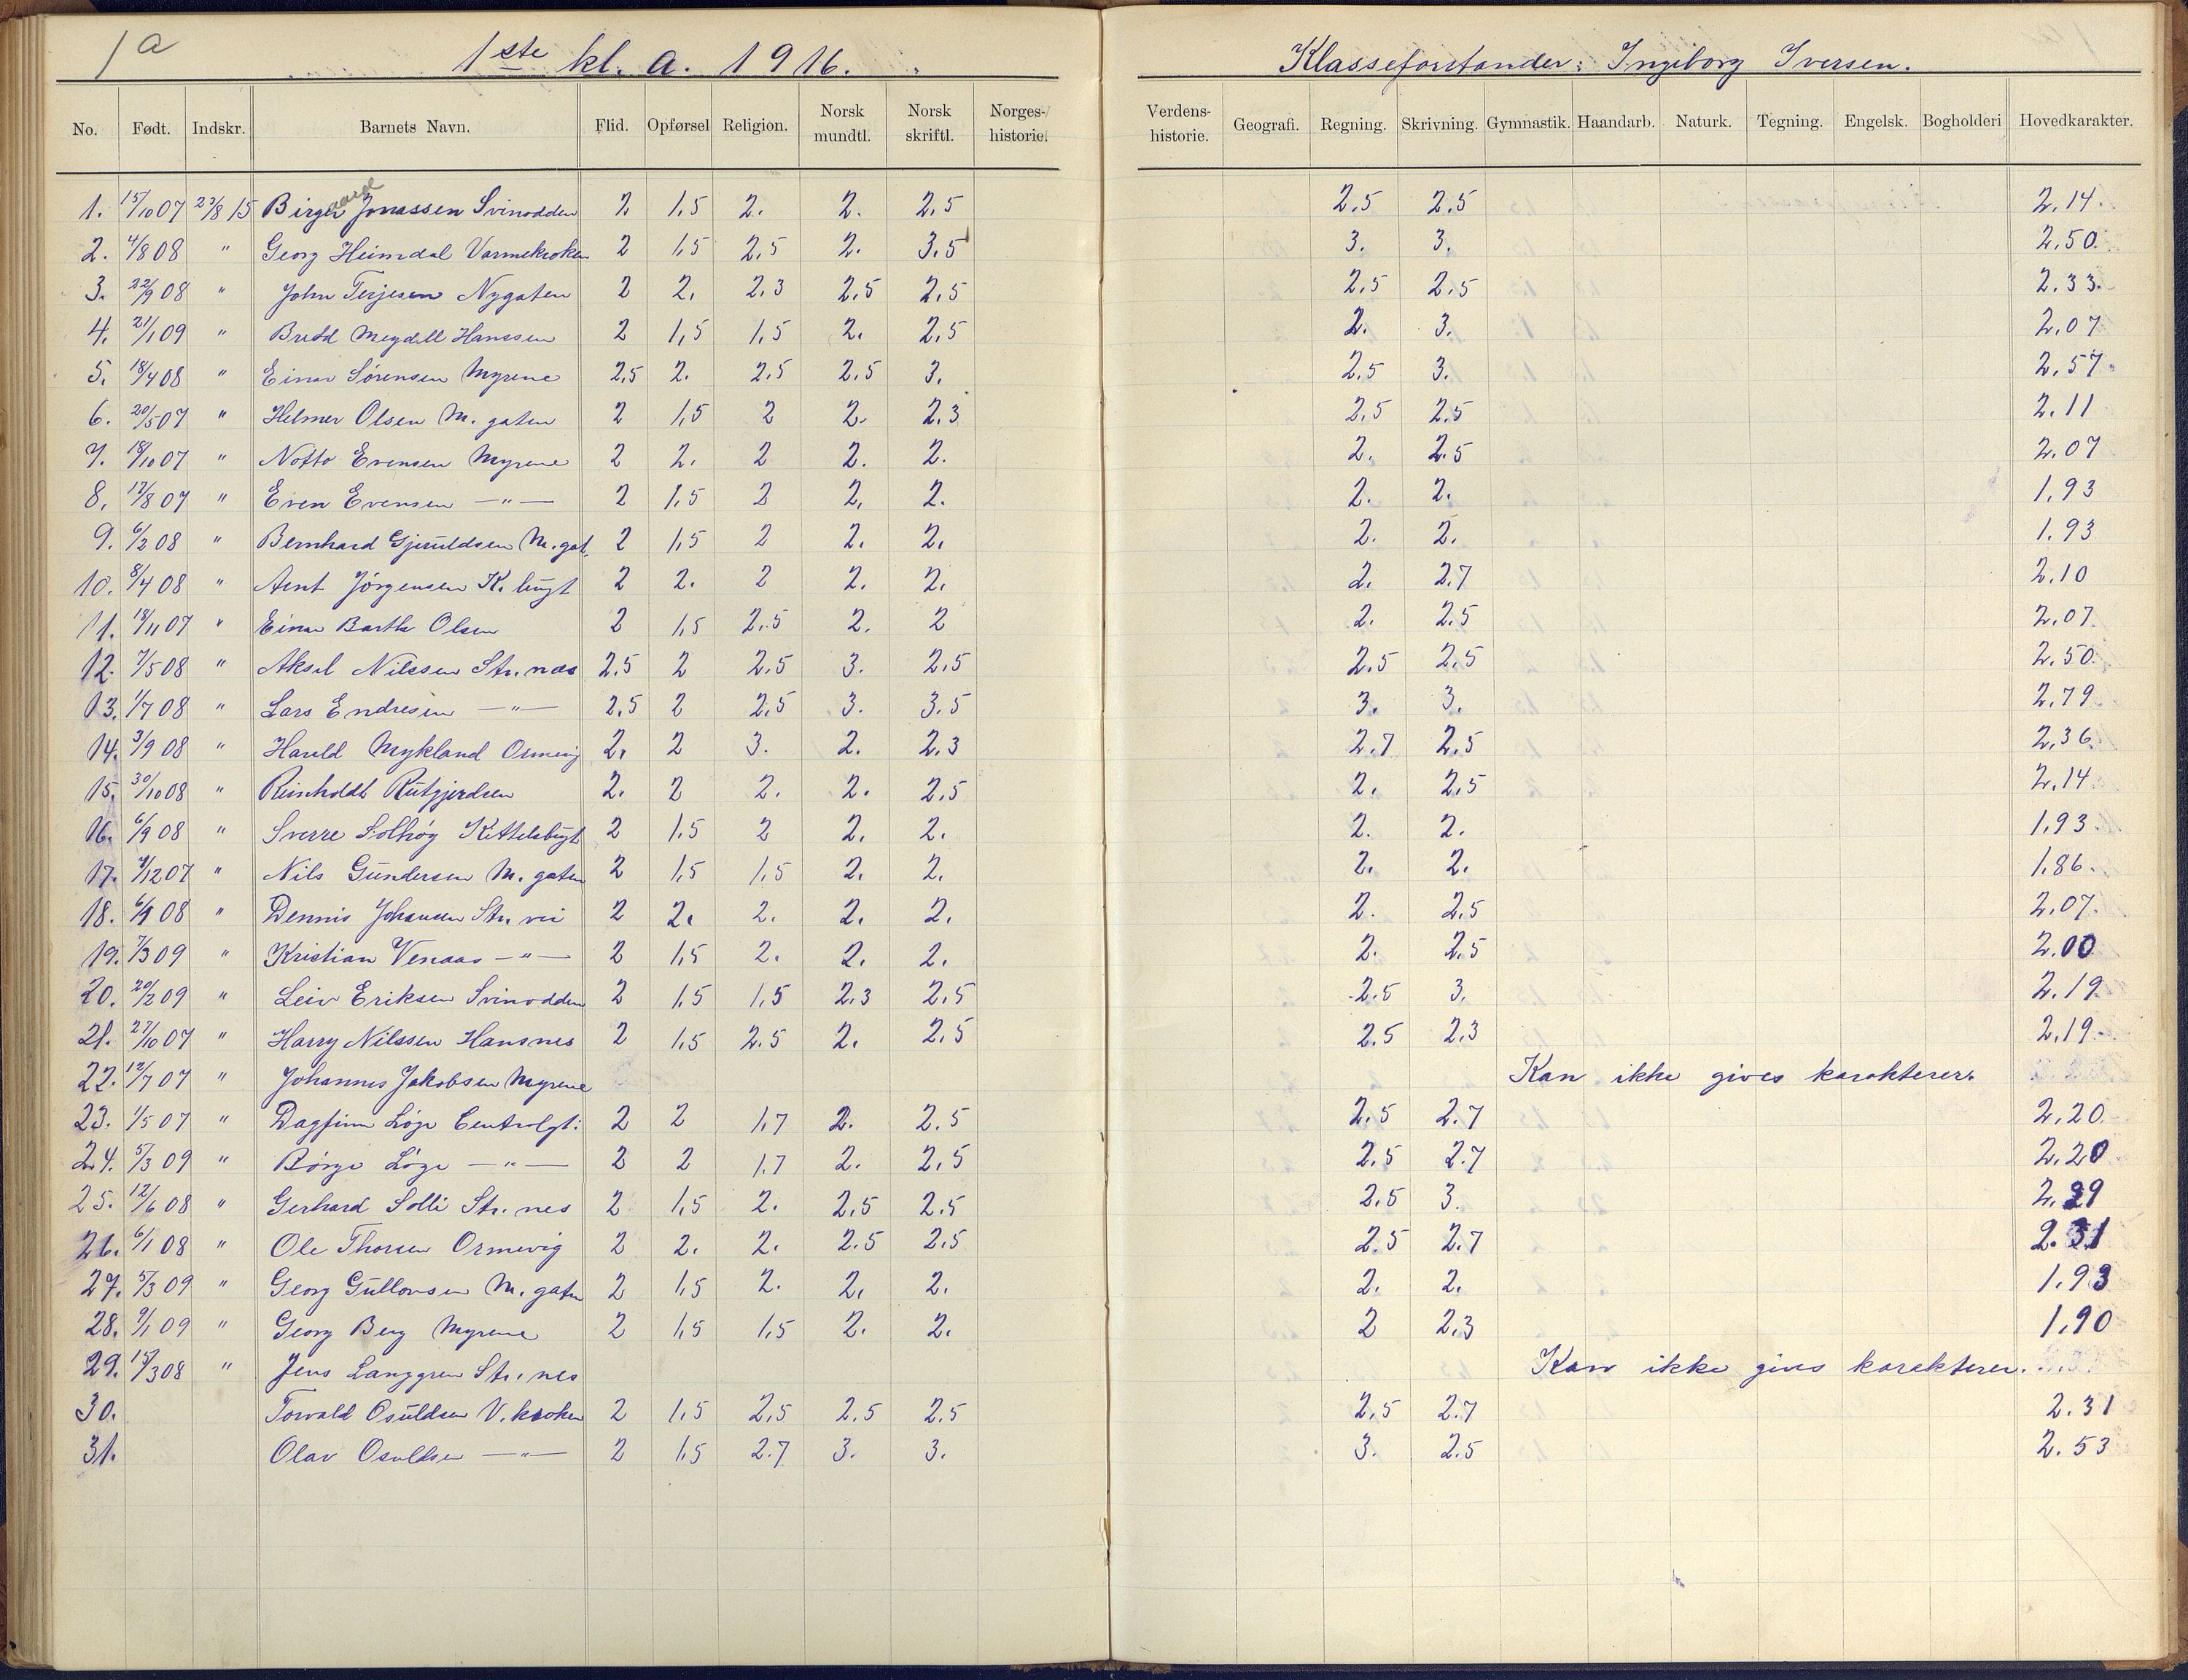 1a
1ste kl. a. 1916.
Klasseforstander: Ingeborg Iversen.
No. Født. Indskr. Barnets Navn. Flid. Opførsel Religion. Norsk mundtl. Norsk skriftl. Norges-historie. Verdens-historie. Geografi. Regning. Skrivning. Gymnastik. Haandarb. Naturk. Tegning. Engelsk. Bogholderi Hovedkarakter.
aard
1. 15/10 07 23/8 15 Birger Jonassen Svinodden 2 1,5 2. 2. 2,5 2,5 2,5 2,14.
2. 4/8 08 " Georg Heimdal Varmekroken 2 1,5 2,5 2. 3,5 3. 3. 2,50.
3. 22/9 08 " John Terjesen Nygaten 2 2. 2,3 2,5 2,5 2,5 2,5 2,33.
4. 21/1 09 " Megdell Hanssen 2 1,5 1,5 2. 2,5 2. 3. 2,07
5. 18/4 08 " Einar Sørensen Myrene 2,5 2. 2,5 2,5 3. 2,5 3. 2,57.
6. 20/5 07 " Helmer Olsen M. gaten 2 1,5 2 2. 2,3 2,5 2,5 2,11
7. 18/10 07 " Notto Evensen Myrene 2 2. 2 2. 2. 2. 2.5 2,07
8. 12/8 07 " Even Evensen —"— 2 1,5 2 2, 2. 2. 2. 1,93
9. 6/2 08 " Bernhard Gjeruldsen M. gat. 2 1,5 2 2. 2. 2. 2. 1,93
10. 8/4 08 " Arnt Jörgensen K. bugt 2 2. 2 2. 2. 2. 2.7 2,10
11. 18/11 07 " Einar Barth Olsen 2 1,5 2,5 2. 2 2. 2,5 2,07.
12. 7/5 08 " Aksel Nilssen Str. nes 2.5 2 2,5 3. 2,5 2,5 2,5 2,50.
13. 1/7 08 " Lars Endresen —"— 2,5 2 2,5 3. 3,5 3. 3. 2,79
14. 3/9 08 " Harald Mykland Ormevig 2. 2 3. 2. 2,3 2,7 2,5 2,36.
15. 30/10 08 " Reinholdt Rutgjerdsen 2. 2 2. 2. 2,5 2. 2,5 2,14
16. 6/9 08 " Sverre Solhøy Kittelsbugt 2 1,5 2 2. 2. 2. 2. 1,93.
17. 7/12 07 " Nils Gundersen M. gaten 2 1,5 1,5 2. 2. 2. 2. 1,86.
18. 6/9 08 " Dennis Johansen Str. vei 2 2. 2. 2. 2. 2. 2,5 2,07.
19. 7/3 09 " Kristian Venaas —"— 2 1,5 2. 2. 2. 2. 2,5 2,00
20. 20/2 09 " Leiv Eriksen Svinodden 2 1,5 1,5 2,3 2,5 2.5 3. 2,19
21. 27/10 07 " Harry Nilssen Hansnes 2 1,5 2.5 2. 2,5 2.5 2,3 2,19
22. 12/7 07 " Johannes Jakobsen Myrene Kan ikke gives karakterer.
23. 1/5 07 " Dagfinn Løge Centralgt. 2 2 1,7 2. 2.5 2,5 2.7 2,20
24. 5/3 09 " Børge Løge —"— 2 2 1,7 2. 2,5 2,5 2.7 2,20
25. 12/6 08 " Gerhard Solli Str. nes 2 1,5 2. 2,5 2.5 2,5 3. 2,29
26. 6/1 08 " Ole Thorsen Ormevig 2 2. 2. 2.5 2.5 2.5 2.7 2.31
27. 5/3 09 " Georg Gullovsen M. gaten 2 1,5 2. 2. 2. 2. 2. 1,93
28. 9/1 09 " Georg Berg Myrene 2 1,5 1,5 2. 2. 2 2,3 1,90
29. 15/3 08 " Jens Langgren Str. nes Kan ikke gives karakterer.
30. Torvald Osuldsen V. kroken 2 1,5 2,5 2.5 2,5 2,5 2.7 2.31
31. Olav Osuldsen —"— 2 1,5 2.7 3. 3. 3. 2.5 2.53